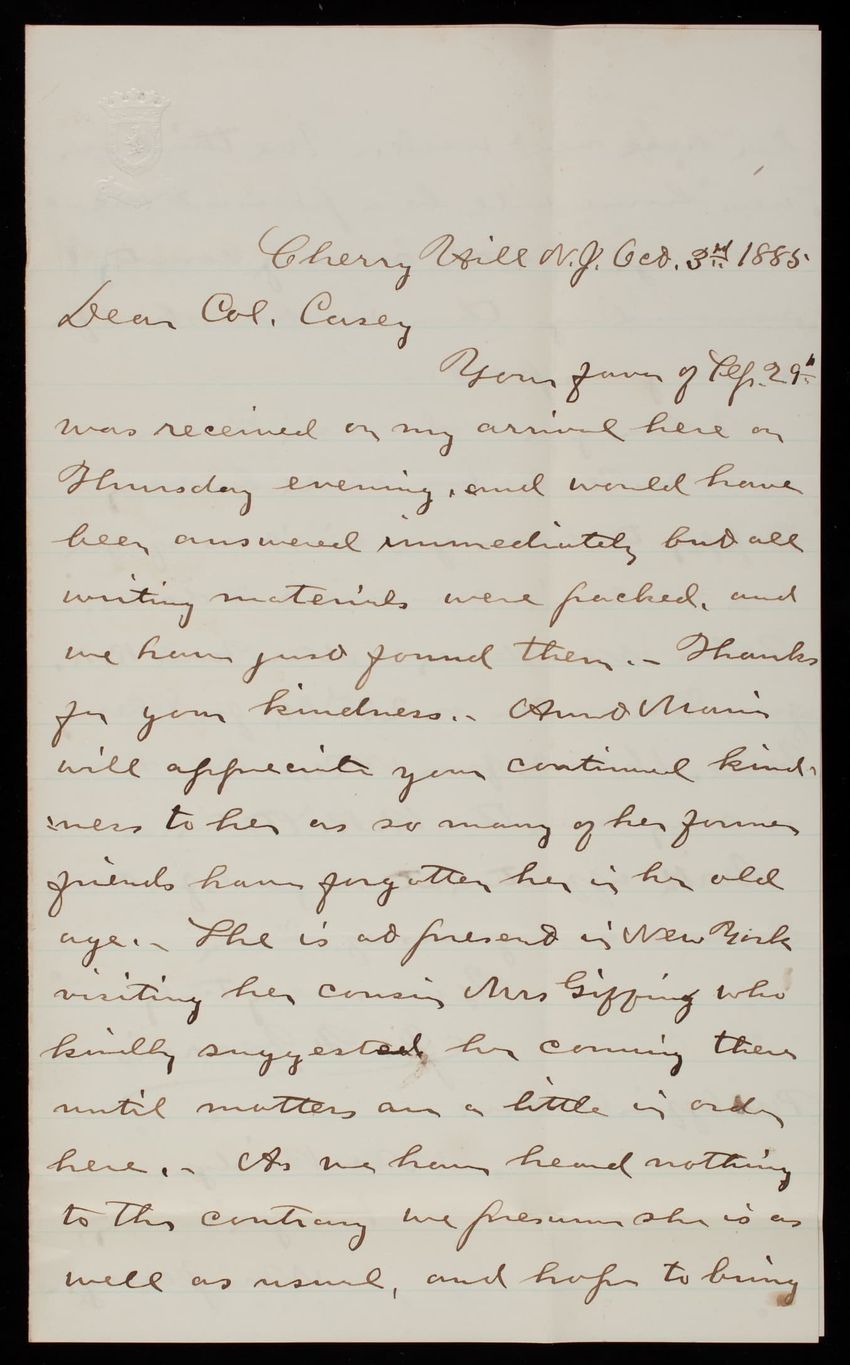 Cherry Hill N.J. Oct. 3rd 1885
Dear Col. Casey
Your favor of Sep. 29th
was received on my arrival here on
Thursday evening, and would have
been answered immediately but all
writing materials were packed, and
we have just found them. – Thanks
for your kindness. – Aunt Maria
will appreciate your continued kind-
:ness to her as so many of her former
friends have forgotten her in her old
age. – She is at present in New York
visiting her cousin Mrs who
kindly suggested her coming there
until matters are a little in order
here. – As we have heard nothing
to the contrary we presume she is as
well as usual, and hope to bring